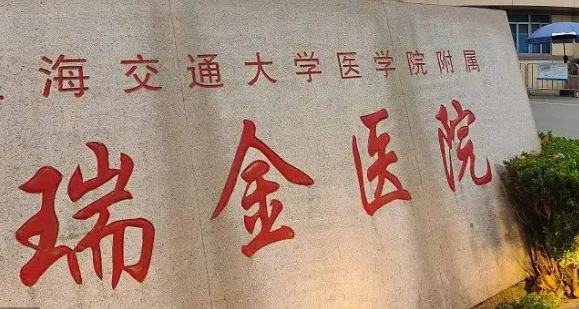 海交通大学医学院附属
瑞金医院